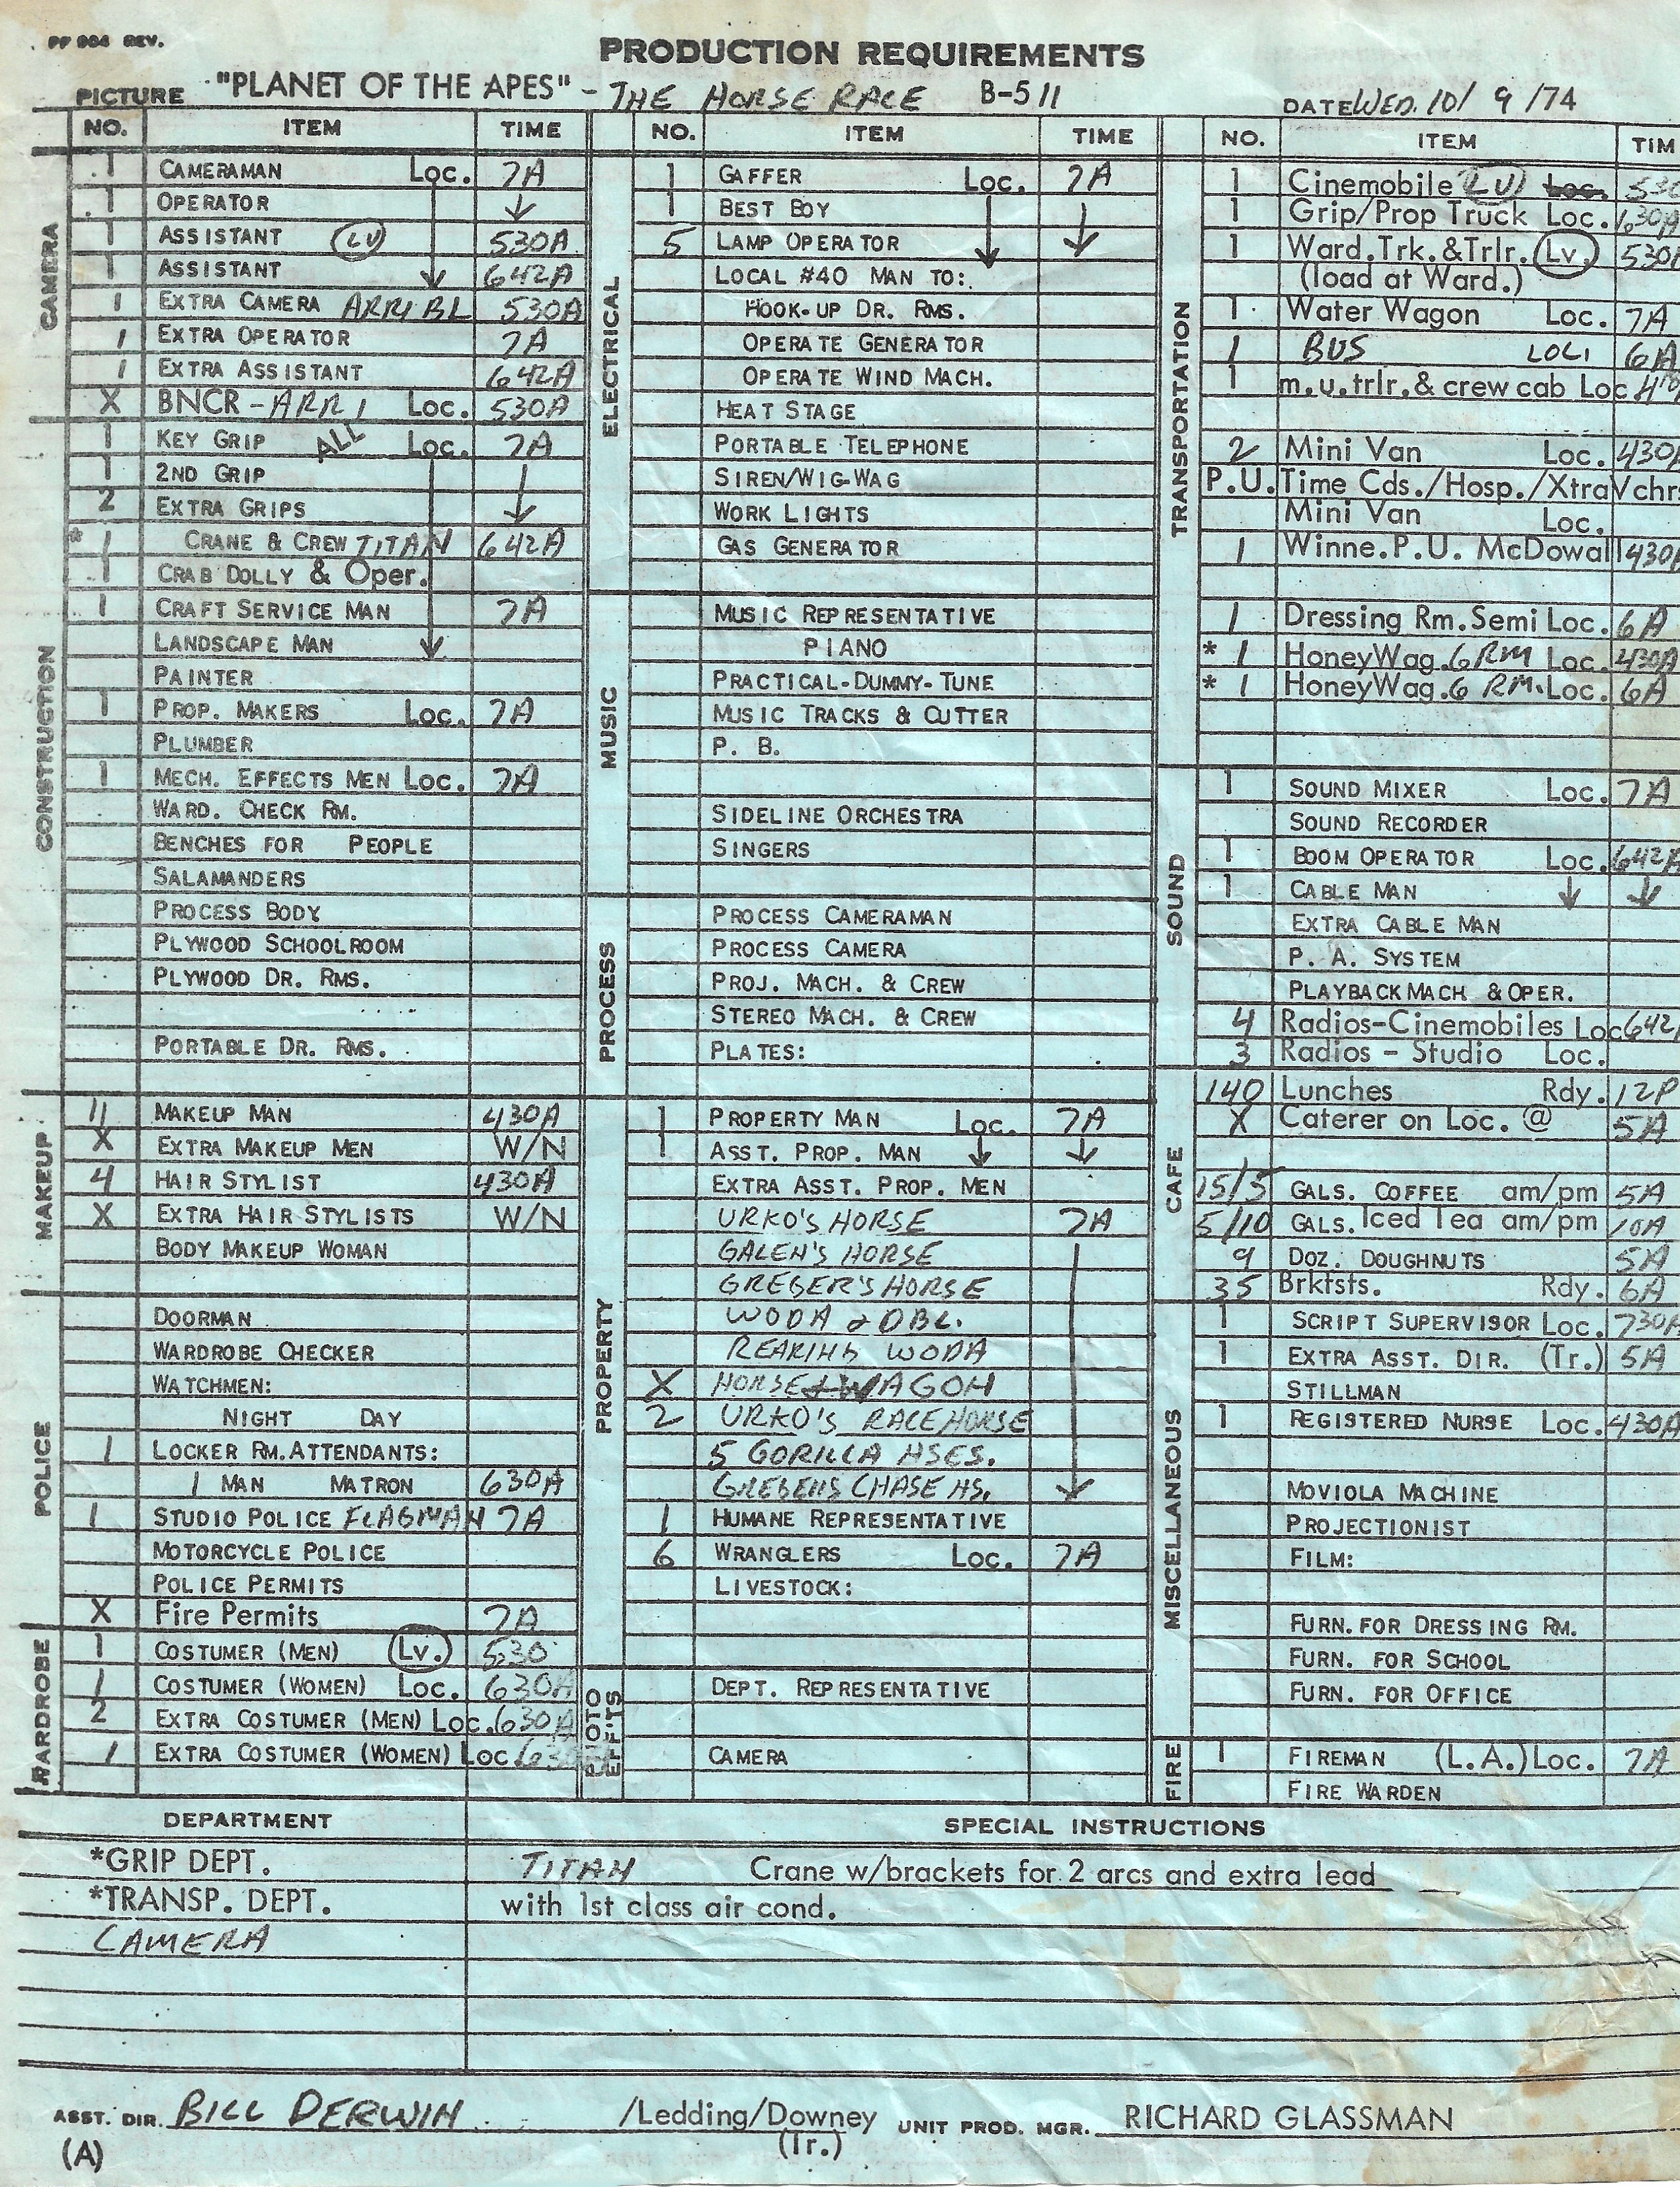 PF 904 REV.
PRODUCTION REQUIREMENTS
PICTURE "PLANET OF THE APES" - THE HORSE RACE B-511 DATE WED. 10/ 9 /74
NO. ITEM TIME
CAMERA
1 CAMERAMAN Loc. 7A
1 OPERATOR ↓
1 ASSISTANT (LV) 530A
1 ASSISTANT 642A
1 EXTRA CAMERA ARRI BL 530A
1 EXTRA OPERATOR 7A
1 EXTRA ASSISTANT 642A
X BNCR - ARRI Loc. 530A
CONSTRUCTION
1 KEY GRIP ALL Loc. 7A
1 2ND GRIP
2 EXTRA GRIPS ↓
* 1 CRANE & CREW TITAN 642A
1 CRAB DOLLY & Oper.
1 CRAFT SERVICE MAN 7A
LANDSCAPE MAN
PAINTER
1 PROP. MAKERS Loc. 7A
PLUMBER
1 MECH. EFFECTS MEN Loc. 7A
WARD. CHECK RM.
BENCHES FOR PEOPLE
SALAMANDERS
PROCESS BODY
PLYWOOD SCHOOLROOM
PLYWOOD DR. RMS.
PORTABLE DR. RMS.
MAKEUP
11 MAKEUP MAN 430A
X EXTRA MAKEUP MEN W/N
4 HAIR STYLIST 430A
X EXTRA HAIR STYLISTS W/N
BODY MAKEUP WOMAN
POLICE
DOORMAN
WARDROBE CHECKER
WATCHMEN:
NIGHT DAY
1 LOCKER RM. ATTENDANTS:
1 MAN MATRON 630A
1 STUDIO POLICE FLAGMAN 7A
MOTORCYCLE POLICE
POLICE PERMITS
X Fire Permits 7A
RARDROBE
1 COSTUMER (MEN) (Lv.) 530
1 COSTUMER (WOMEN) Loc. 630A
2 EXTRA COSTUMER (MEN) Loc. 630A
1 EXTRA COSTUMER (WOMEN) Loc 630
NO. ITEM TIME
ELECTRICAL
1 GAFFER Loc. 7A
1 BEST BOY
5 LAMP OPERATOR ↓ ↓
LOCAL #40 MAN TO:
HOOK-UP DR. RMS.
OPERATE GENERATOR
OPERATE WIND MACH.
HEAT STAGE
PORTABLE TELEPHONE
SIREN/WIG-WAG
WORK LIGHTS
GAS GENERATOR
MUSIC
MUSIC REPRESENTATIVE
PIANO
PRACTICAL-DUMMY-TUNE
MUSIC TRACKS & CUTTER
P. B.
SIDELINE ORCHESTRA
SINGERS
PROCESS
PROCESS CAMERAMAN
PROCESS CAMERA
PROJ. MACH. & CREW
STEREO MACH. & CREW
PLATES:
PROPERTY
1 PROPERTY MAN Loc. 7A
1 ASST. PROP. MAN ↓ ↓
EXTRA ASST. PROP. MEN
URKO'S HORSE 7A
GALEN'S HORSE
GREGER'S HORSE
WODA & DBL.
REARING WODA
X HORSE & WAGON
2 URKO'S RACEHORSE
5 GORILLA HSES.
GREGERS CHASE HS. ↓
1 HUMANE REPRESENTATIVE
6 WRANGLERS Loc. 7A
LIVESTOCK:
PHOTO EFF'TS
DEPT. REPRESENTATIVE
CAMERA
NO. ITEM TIM
TRANSPORTATION
1 Cinemobile (LV) Loc. 530
1 Grip/Prop Truck Loc. 630A
1 Ward. Trk. & Trlr. (Lv.) 530A
(load at Ward.)
1 Water Wagon Loc. 7A
1 BUS LOC. 6A
1 m.u. trlr. & crew cab Loc
2 Mini Van Loc. 430A
P.U. Time Cds./Hosp./Xtra Vchrs
Mini Van Loc.
1 Winne. P.U. McDowall 430A
1 Dressing Rm. Semi Loc. 6A
* 1 HoneyWag. 6 RM Loc. 430A
* 1 HoneyWag. 6 RM. Loc. 6A
SOUND
1 SOUND MIXER Loc. 7A
SOUND RECORDER
1 BOOM OPERATOR Loc. 642A
1 CABLE MAN ↓ ↓
EXTRA CABLE MAN
P. A. SYSTEM
PLAYBACK MACH & OPER.
4 Radios-Cinemobiles Loc 642
3 Radios - Studio Loc.
CAFE
140 Lunches Rdy. 12P
X Caterer on Loc. @ 5A
15/5 GALS. COFFEE am/pm 5A
5/10 GALS. Iced Tea am/pm 10A
9 DOZ. DOUGHNUTS 5A
35 Brkfsts. Rdy. 6A
MISCELLANEOUS
1 SCRIPT SUPERVISOR Loc. 730A
1 EXTRA ASST. DIR. (Tr.) 5A
STILLMAN
1 REGISTERED NURSE Loc. 430A
MOVIOLA MACHINE
PROJECTIONIST
FILM:
FURN. FOR DRESSING RM.
FURN. FOR SCHOOL
FURN. FOR OFFICE
FIRE
1 FIREMAN (L.A.) Loc. 7A
FIRE WARDEN
DEPARTMENT SPECIAL INSTRUCTIONS
*GRIP DEPT. TITAN Crane w/brackets for 2 arcs and extra lead
*TRANSP. DEPT. with 1st class air cond.
CAMERA
ASST. DIR. BILL DERWIN /Ledding/Downey UNIT PROD. MGR. RICHARD GLASSMAN
(A) (Tr.)